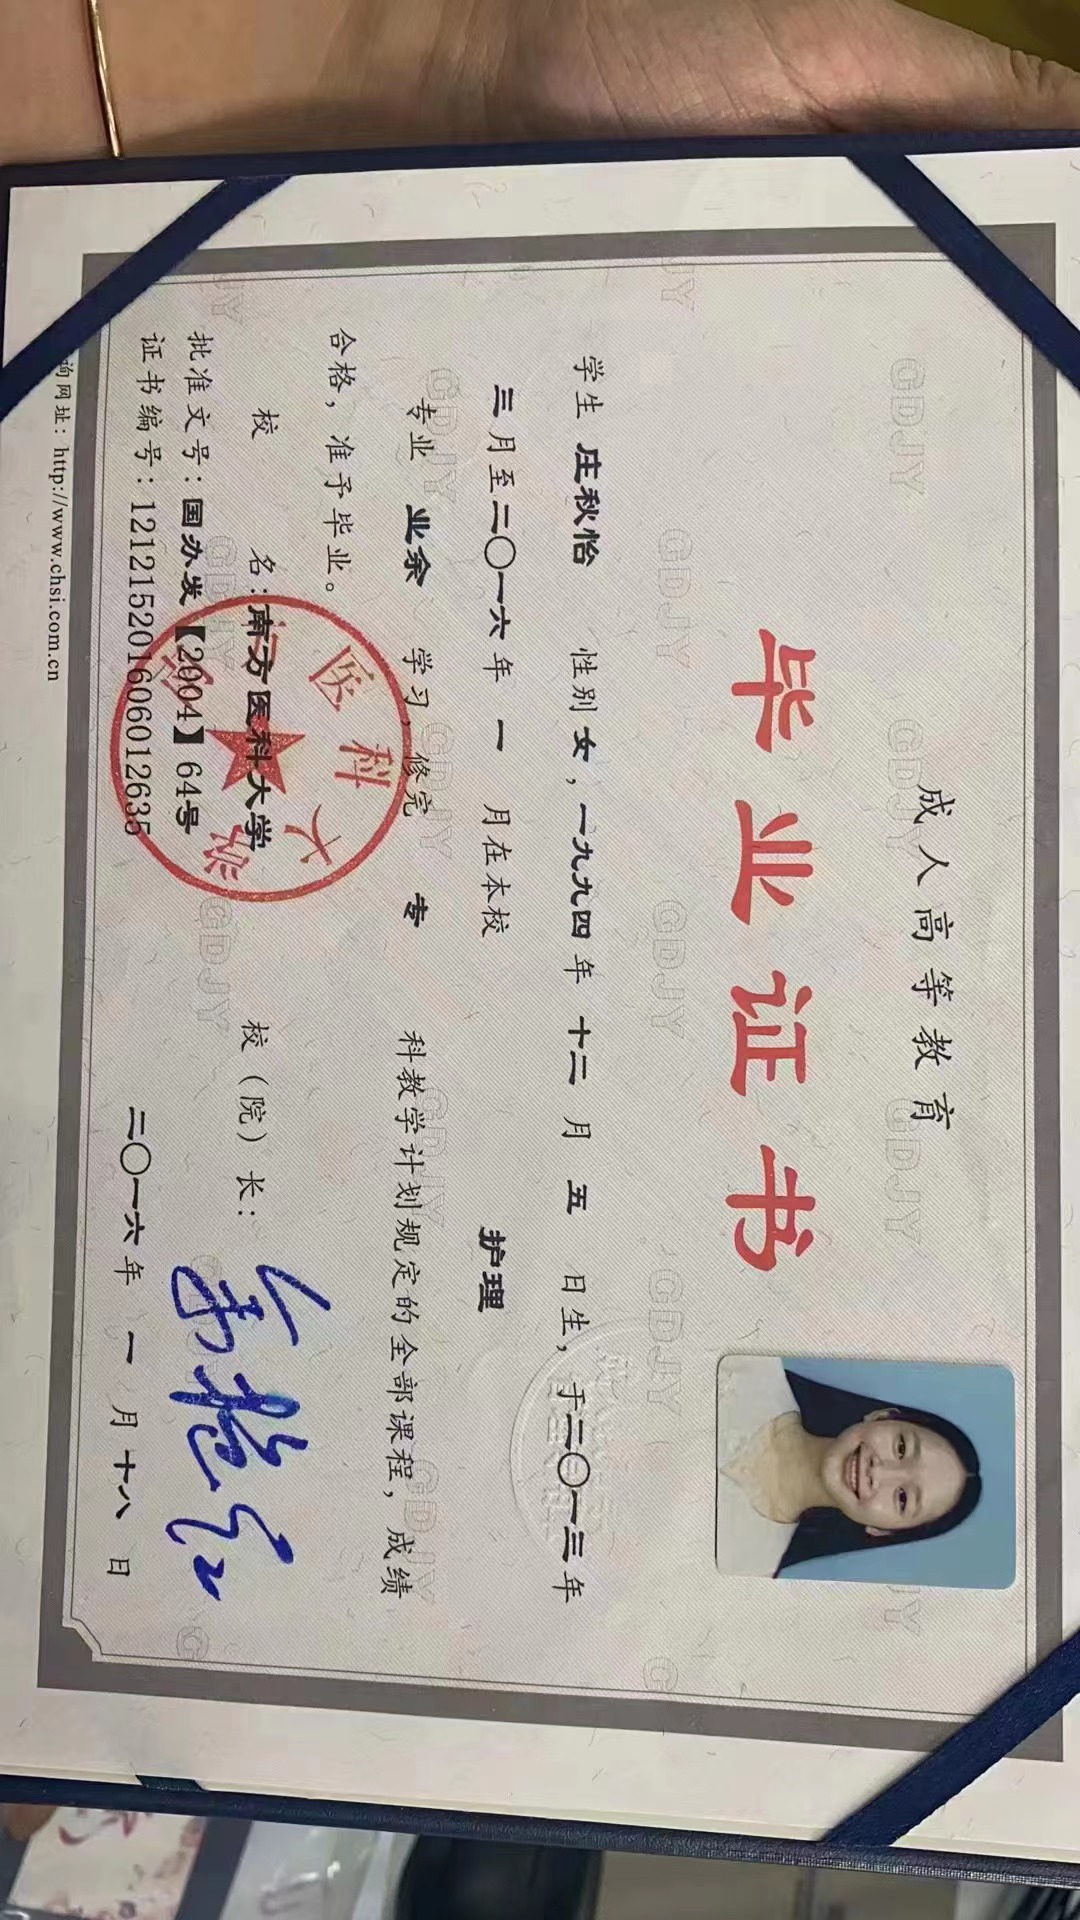 成人高等教育
毕业证书
学生 庄秋怡 性别 女，一九九四年 十二 月 五 日生，于二〇一三年
三月至二〇一六年 一 月在本校 护理
专业 业余 学习，修完 专 科教学计划规定的全部课程，成绩
合格，准予毕业。
校 名：南方医科大学 校（院）长：
批准文号：国办发【2004】64号
证书编号：121215201606012635 二〇一六年 一 月十八 日
询网址：http://www.chsi.com.cn
医科大
GDJY